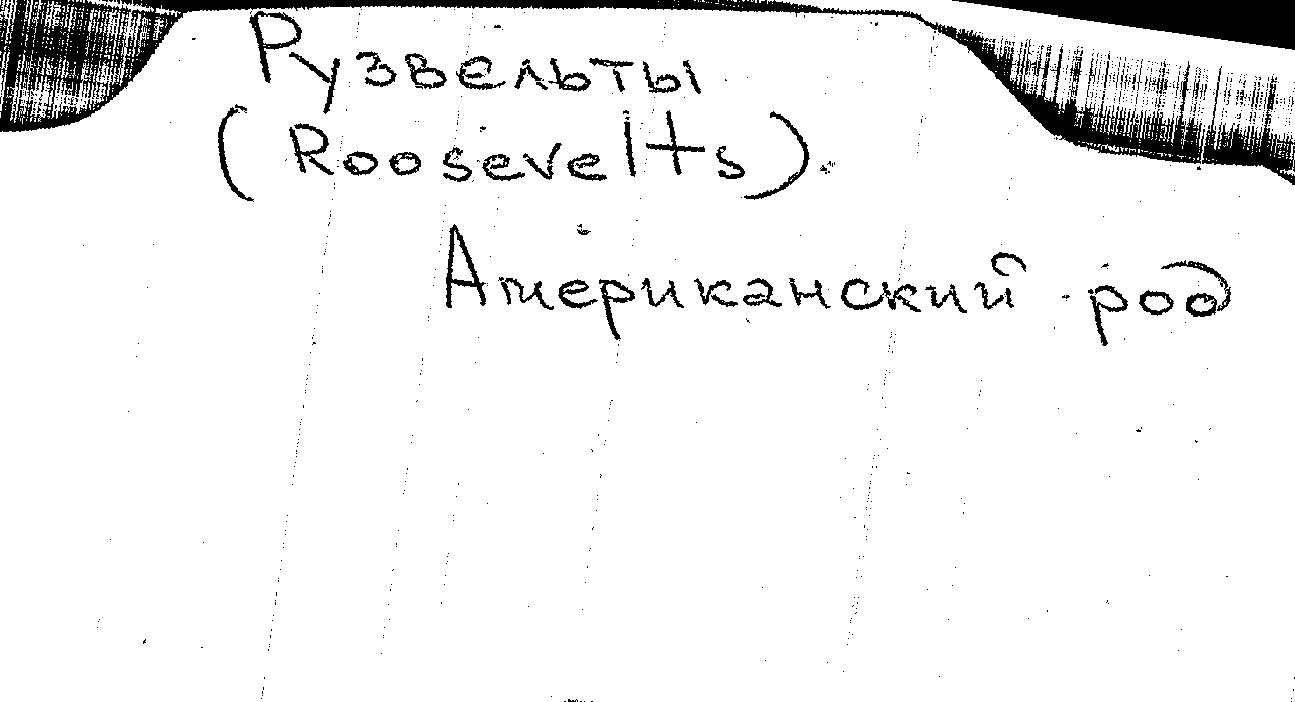 Рузвельты
(Roosevelts).
Американский род